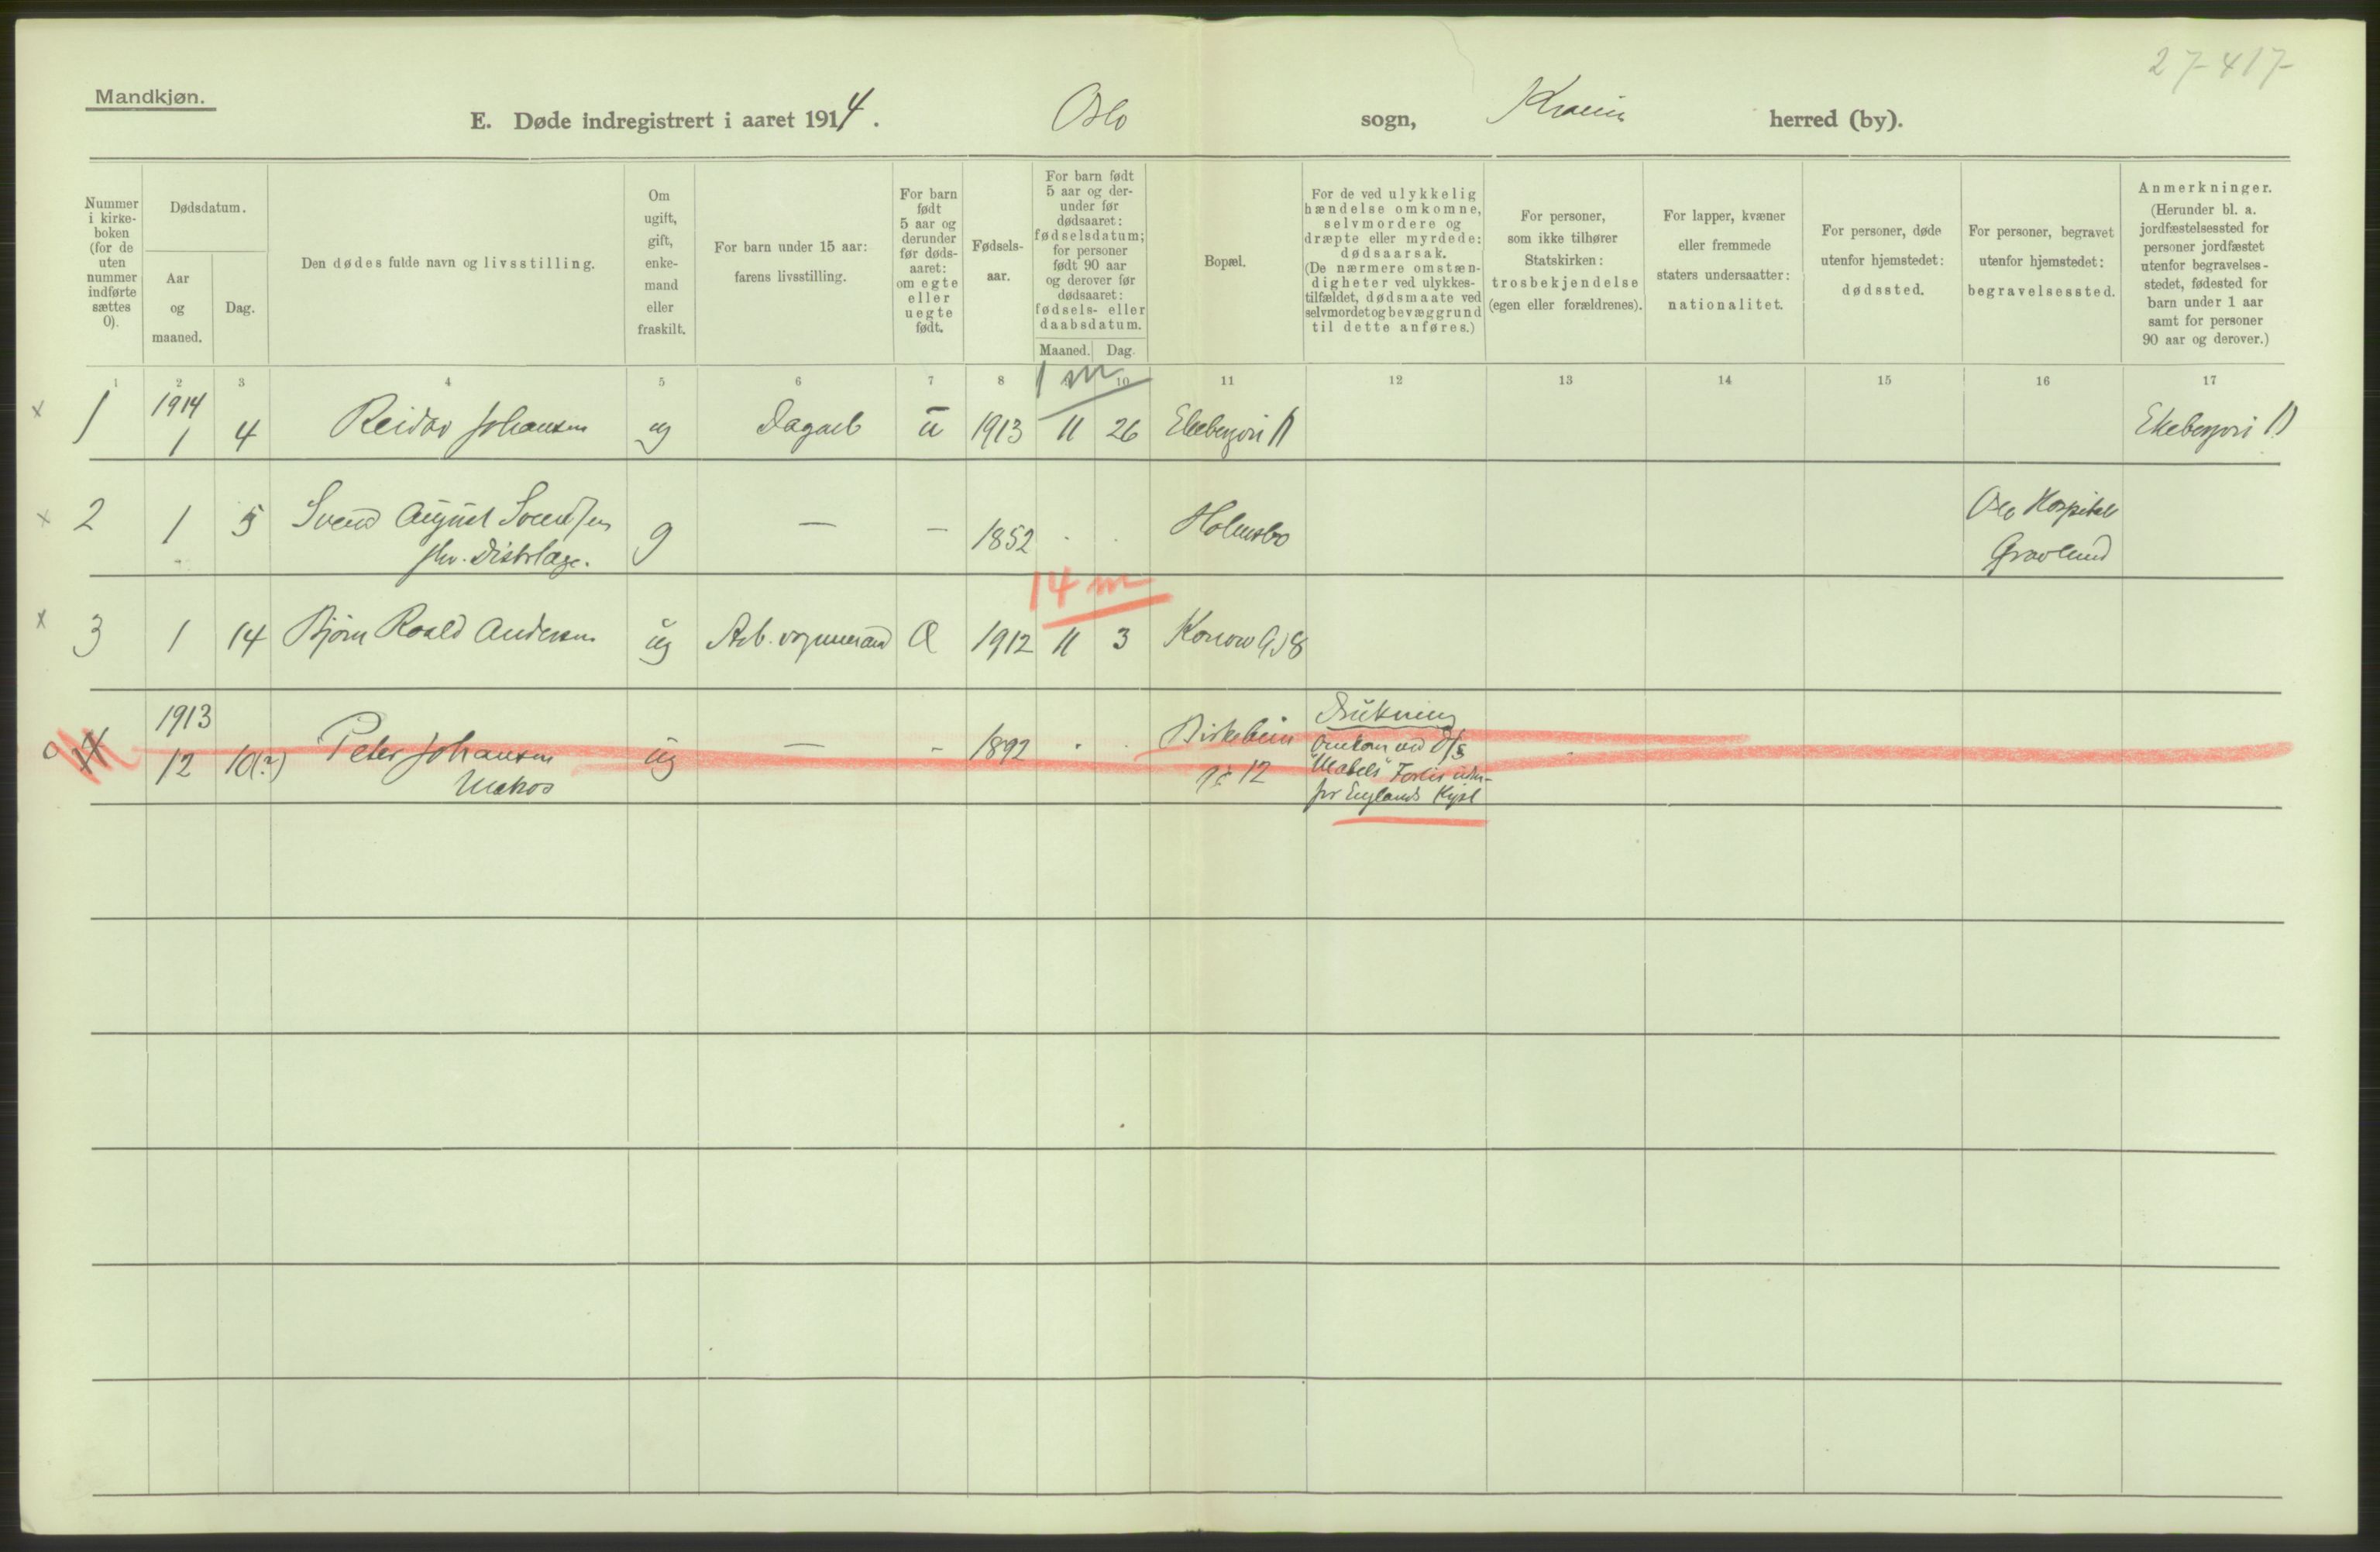 27-417-
Mandkjøn.
E. Døde indregistrert i aaret 1914. Oslo sogn, Krania herred (by).
Nummer i kirke-boken (for de uten nummer indførte sættes 0).
Dødsdatum.
Aar og maaned.
Dag.
Den dødes fulde navn og livsstilling.
Om ugift, gift, enke-mand eller fraskilt.
For barn under 15 aar: farens livsstilling.
For barn født 5 aar og derunder før døds-aaret: om egte eller uegte født.
Fødsels-aar.
For barn født 5 aar og der-under før dødsaaret: fødselsdatum; for personer født 90 aar og derover før dødsaaret: fødsels- eller daabsdatum.
Maaned. Dag.
Bopæl.
For de ved ulykkelig hændelse omkomne, selvmordere og dræpte eller myrdede: dødsaarsak. (De nærmere omstæn-digheter ved ulykkes-tilfældet, dødsmaate ved selvmordet og bevæggrund til dette anføres.)
For personer, som ikke tilhører Statskirken: trosbekjendelse (egen eller forældrenes).
For lapper, kvæner eller fremmede staters undersaatter: nationalitet.
For personer, døde utenfor hjemstedet: dødssted.
For personer, begravet utenfor hjemstedet: begravelsessted.
Anmerkninger. (Herunder bl. a. jordfæstelsessted for personer jordfæstet utenfor begravelses-stedet, fødested for barn under 1 aar samt for personer 90 aar og derover.)
1 2 3 4 5 6 7 8 9 10 11 12 13 14 15 16 17
1 m
x 1 1914 1 4 Reidar Johansen ug Dagarb u 1913 11 26 Ekebergvei Ekebergvei
x 2 1 5 Svend August Svendsen g — - 1852 . . Holmsbo Oslo Hospitals
fhv. Distrlæge. Gravlund
14 m
x 3 1 14 Bjørn Roald Andersen ug Arb. vognmand Æ 1912 11 3 Konow G 8
0 4 1913 12 10(?) Peter Johansen ug — - 1892 . . Birkebein Drukning
Matros 12 Omkom ved D/S
"Mabels" Forlis uden-
for Englands Kyst